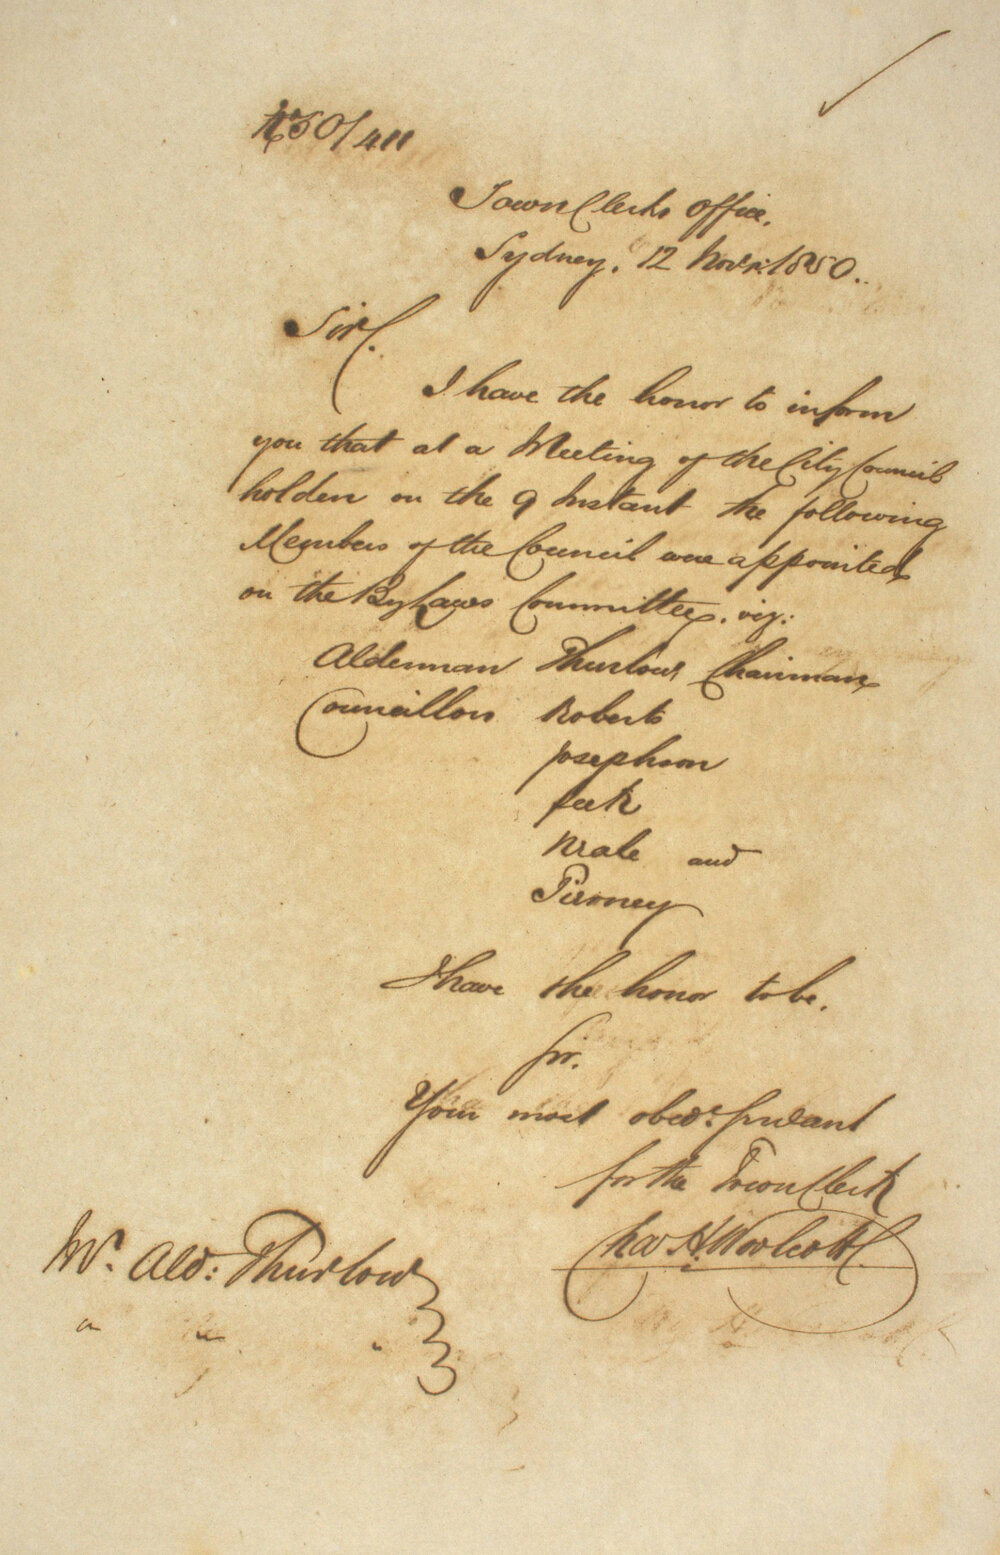 50/411
Town Clerks Office.
Sydney. 12 Novr. 1850.
Sir.
I have the honor to inform
you that at a Meeting of the City Council
holden on the 9 Instant the following
Members of the Council were appointed
on the By Laws Committee. viz:
Alderman Thurlow Chairman
Councillors Roberts
Josephson
Peek
Neale and
Tierney
I have the honor to be.
Sir.
Your most obedt. Servant
for the Town Clerk
Chas. H. Woolcott
Mr. Ald: Thurlow
" " "